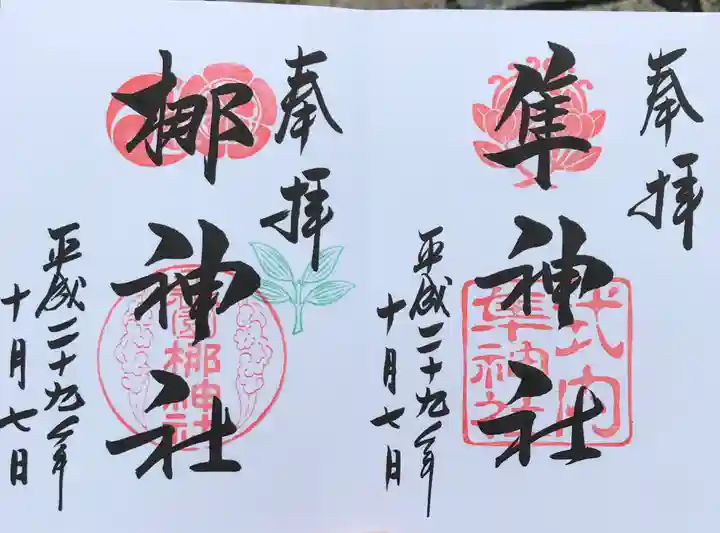 奉拝
隼神社
式内
隼神社
平成二十九年
十月七日
奉拝
梛神社
園梛神社
平成二十九年
十月七日